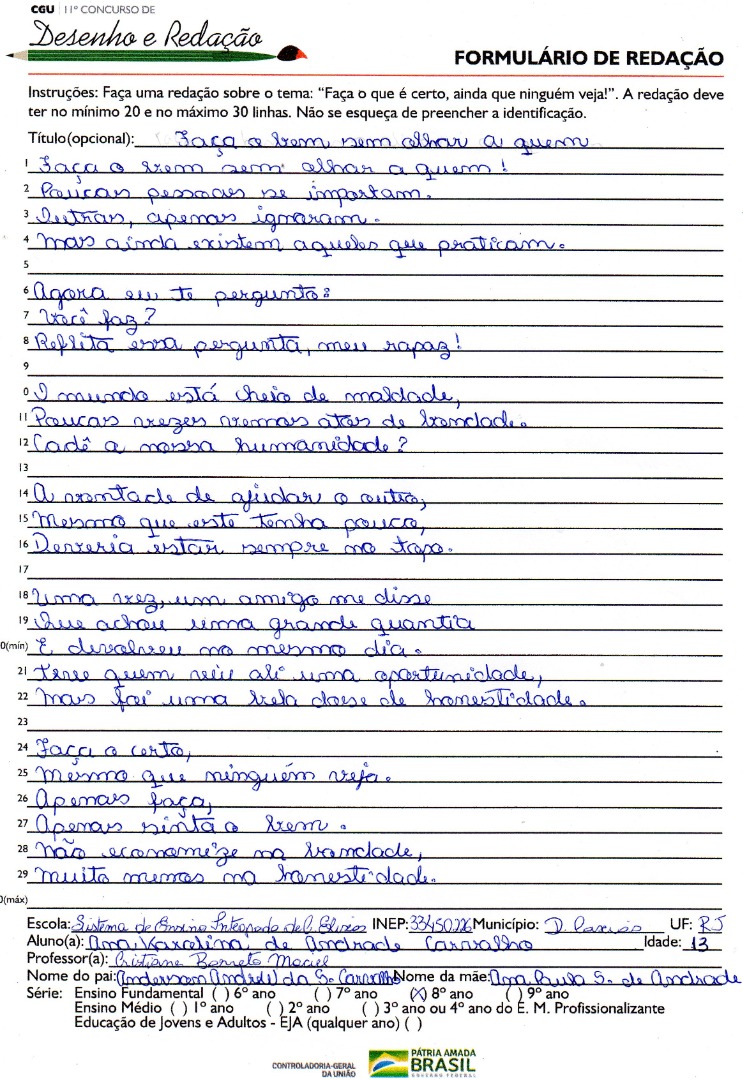 CGU | 11º CONCURSO DE
Desenho e Redação
FORMULÁRIO DE REDAÇÃO
Instruções: Faça uma redação sobre o tema: “Faça o que é certo, ainda que ninguém veja!”. A redação deve
ter no mínimo 20 e no máximo 30 linhas. Não se esqueça de preencher a identificação.
Título(opcional): Faça o bem sem olhar a quem
1 Faça o bem sem olhar a quem!
2 Poucas pessoas se importam.
3 Outras, apenas ignoram.
4 Mas ainda existem aqueles que praticam.
5
6 Agora eu te pergunto:
7 Você faz?
8 Reflita essa pergunta, meu rapaz!
9
0 O mundo está cheio de maldade,
11 Poucas vezes vemos atos de bondade.
12 Cadê a nossa humanidade?
13
14 A vontade de ajudar o outro,
15 Mesmo que este tenha pouco,
16 Deveria estar sempre no topo.
17
18 Uma vez, um amigo me disse
19 Que achou uma grande quantia
0(mín) E devolveu no mesmo dia.
21 Teve quem viu ali uma oportunidade,
22 Mas foi uma bela dose de honestidade.
23
24 Faça o certo,
25 Mesmo que ninguém veja.
26 Apenas faça,
27 Apenas sinta o bem.
28 Não economize na bondade,
29 Muito menos na honestidade.
0(máx)
Escola: Sistema de Ensino Integrado del Elixios INEP: 33450226 Município: D. Caxias UF: RJ
Aluno(a): Ana Karcelina de Andrade Carvalho Idade: 13
Professor(a): Cristiane Barreto Maciel
Nome do pai: Anderson André da S. Carvalho Nome da mãe: Ana Paula S. de Andrade
Série: Ensino Fundamental ( ) 6º ano ( ) 7º ano (X) 8º ano ( ) 9º ano
Ensino Médio ( ) 1º ano ( ) 2º ano ( ) 3º ano ou 4º ano do E. M. Profissionalizante
Educação de Jovens e Adultos - EJA (qualquer ano) ( )
CONTROLADORIA-GERAL
DA UNIÃO
PÁTRIA AMADA
BRASIL
GOVERNO FEDERAL